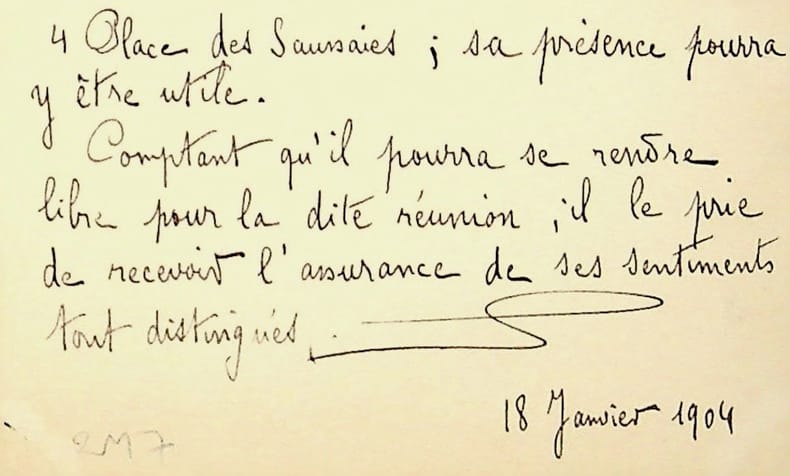 4 Place des Saussaies ; sa présence pourra
y être utile.
Comptant qu'il pourra se rendre
libre pour la dite réunion, il le prie
de recevoir l'assurance de ses sentiments
tout distingués.
18 Janvier 1904
2M7